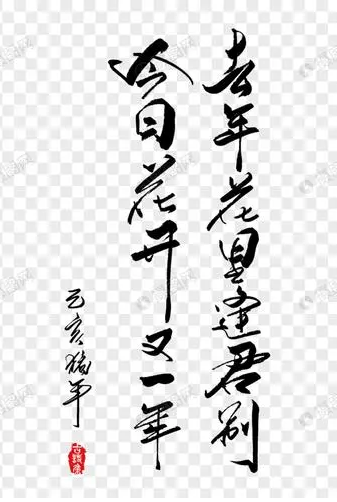 去年花里逢君别
今日花开又一年
己亥猪年